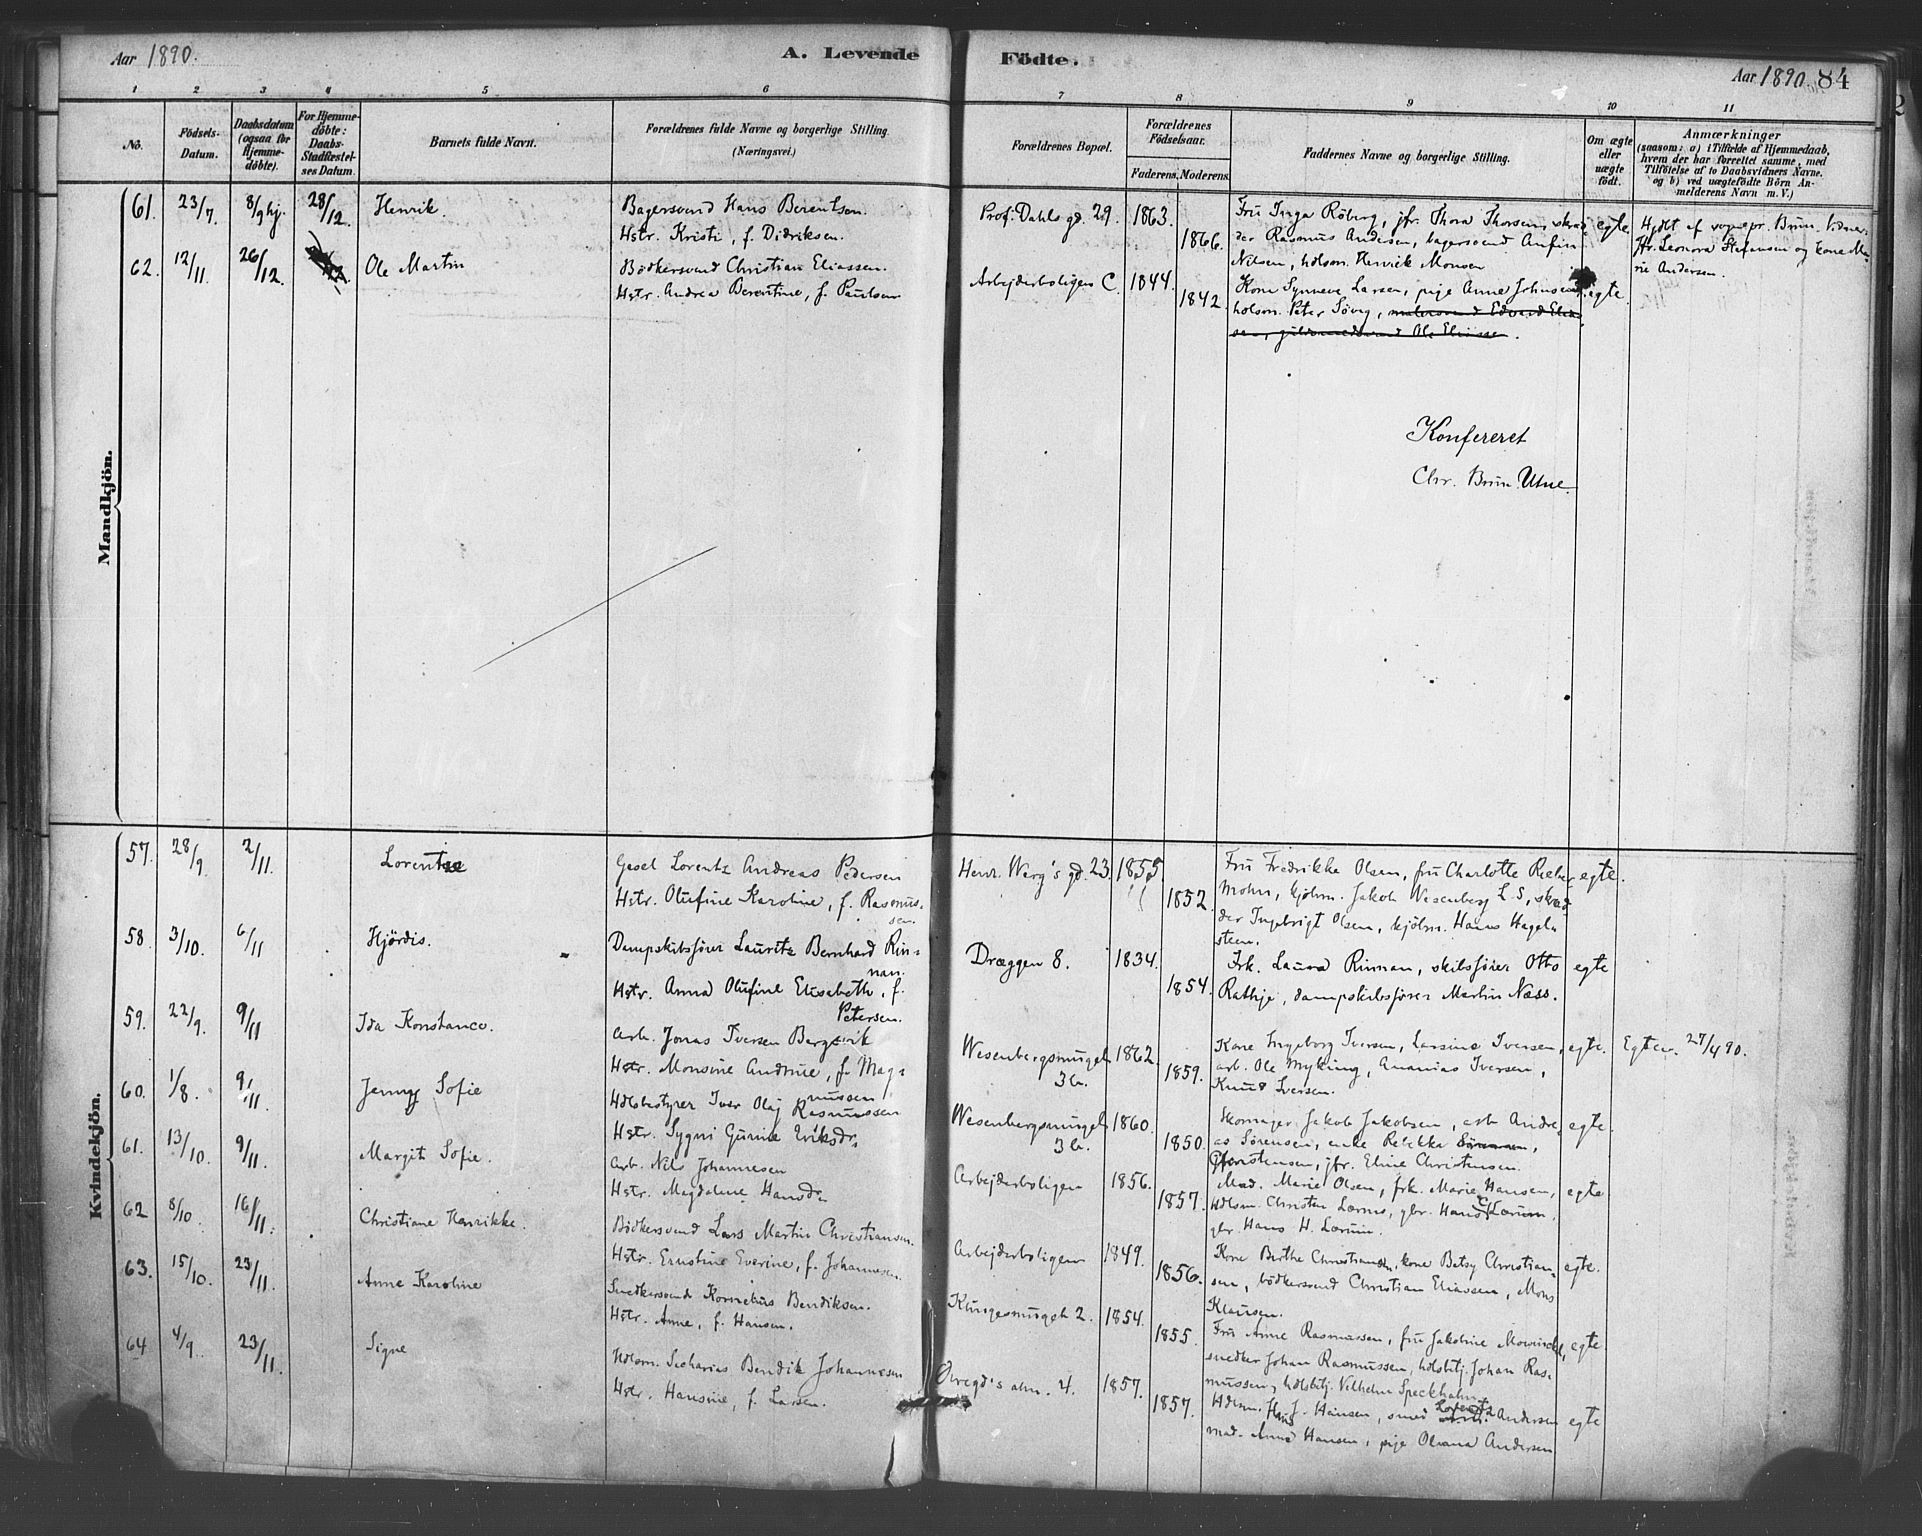 Aar 1890.
A. Levende Födte.
Aar 1890. 84
1 2 3 4 5 6 7 8 9 10 11
No.
Födsels-Datum.
Daabsdatum (ogsaa for Hjemme-döbte).
For Hjemme-döbte: Daabs-Stadfæstel-ses Datum.
Barnets fulde Navn.
Forældrenes fulde Navne og borgerlige Stilling.
(Næringsvei.)
Forældrenes Bopæl.
Forældrenes Födselsaar.
Faderens. Moderens.
Faddernes Navne og borgerlige Stilling.
Om ægte eller uægte födt.
Anmærkninger
(saasom: a) i Tilfælde af Hjemmedaab,
hvem der har forrettet samme, med
Tilföielse af to Daabsvidners Navne.
og b) ved uægtefödte Börn An-
melderens Navn m. V.)
Mandkjön.
61. 23/7. 8/9 hj. 28/12. Henrik.
Bagersvend Hans Berentsen.
Hstr. Kristi, f. Didriksen.
Prof. Dahls gd. 29. 1863. 1866.
Fru Inga Röberg, jfr. Thora Thorsen, skræd-
der Rasmus Andersen, bagersvend Anfin
Nilsen, hdlsm. Henrik Monsen
egte.
Hjdbt af sognepr. Brun. Vidner:
Fr. Leonora Stefansen og kone Ma-
rie Andersen.
62. 12/11. 26/12. Ole Martin
Bödkersvend Christian Eliassen.
Hstr. Andrea Berentine, f. Paulsen
Arbejderboligen C. 1844. 1842.
Kone Synneve Larsen, pige Anne Johnsen,
hdlsm. Peter Sövig, malersvend Edvard Elias-
sen, guldsmedsvend Ole Eliassen.
egte.
Konfereret
Chr. Brun. Utne.
Kvindekjön.
57. 28/9. 2/11. Lorentze
Gesel Lorentz Andreas Pedersen
Hstr. Olufine Karoline, f. Rasmus-
sen.
Henr. Werg's gd. 23. 1855. 1852.
Fru Fredrikke Olsen, fru Charlotte Rieber
Mohn, kjöbm. Jakob Wesenberg L. S., skræd-
der Ingebrigt Olsen, kjöbm. Hans Hagel-
steen.
egte.
58. 3/10. 6/11 Hjördis.
Dampskibsförer Lauritz Bernhard Rin-
nan.
Hstr. Anna Olufine Elisabeth, f.
Petersen.
Dræggen 8. 1834. 1854.
Frk. Laura Rinnan, skibsförer Otto
Rathje, dampskibsförer Martin Næss.
egte
59. 22/9. 9/11 Ida Konstance.
Arb. Jonas Iversen Bergevik
Hstr. Monsine Andrine, f. Mag-
nussen
Wesenbergsmuget 3b. 1862. 1859.
Kone Ingeborg Iversen, Larsine Iversen,
arb. Ole Myking, Ananias Iversen,
Knud Iversen.
egte.
Egtev. 27/4 90.
60. 1/8. 9/11. Jenny Sofie
Hdlsbestyrer Iver Olaj Rasmussen
Hstr. Sygni Gurine Eriksdr.
Wesenbergsmuget 3b. 1860. 1850.
Skomager Jakob Jakobsen, arb. Andre-
as Sörensen, enke Rebekka Sörensen,
Christensen, jfr. Eline Christensen.
egte.
61. 13/10. 9/11. Margit Sofie.
Arb. Nils Johannesen
Hstr. Magdalene Hansdr.
Arbejderboligen 1856. 1857.
Mad. Marie Olsen, frk. Marie Hansen,
Hdlsm. Christen Lærum, gbr. Hans C. Lærum,
gbr. Hans H. Lærum.
egte.
62 8/10. 16/11. Christiane Henrikke.
Bödkersvend Lars Martin Christiansen.
Hstr. Ernstine Everine, f. Johannesen.
Arbejderboligen 1849. 1856.
Kone Birthe Christiansen, kone Betsy Christian-
sen, bödkersvend Christian Eliassen, Mons
Klausen.
egte.
63. 15/10. 23/11. Anne Karoline
Snedkersvend Kornelius Bendiksen.
Hstr. Anne, f. Hansen.
Klingesmuget 2. 1854. 1855.
Fru Anne Rasmussen, fru Jakobine Mowinckel,
snedker Johan Rasmussen, hdlsbtj. Johan Ras-
mussen, hdlsbtj. Vilhelm Speckhahn
egte.
64 4/9. 23/11. Signe
Hdlsm. Sacharias Bendik Johannesen
Hstr. Hansine, f. Larsen.
Øvregd's alm. 4. 1857. 1857.
Hdlsm. Hans J. Hansen, smed Lorentz Andersen
mad. Anna Hansen, pige Oleana Andersen
egte